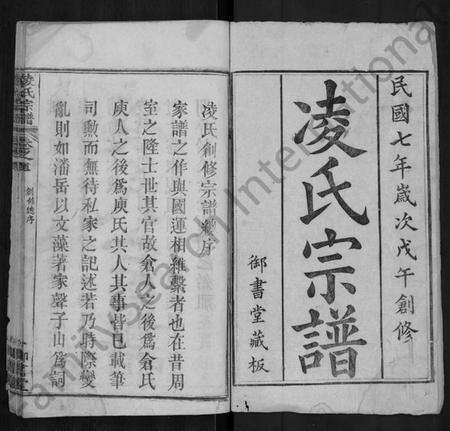 民國七年歲次戊午創修
凌氏宗譜
御書堂藏板
凌氏創修宗譜總序
家譜之作與國運相維繫者也在昔周
室之隆士世其官故倉人之後爲倉氏
庾人之後爲庾氏其人其事皆已載筆
司勲而無待私家之記述若乃時際變
亂則如潘岳以文藻著家聲子山爲詞
凌氏宗譜
卷之首
創修總序
FamilySearch International